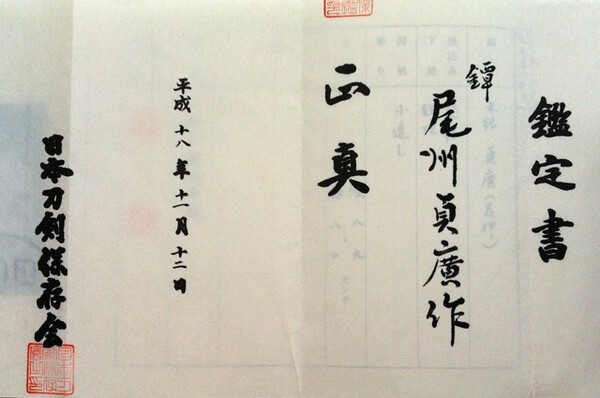 鑑定書
鐔
尾州貞廣作
正真
平成十八年十一月十二日
日本刀剣保存会